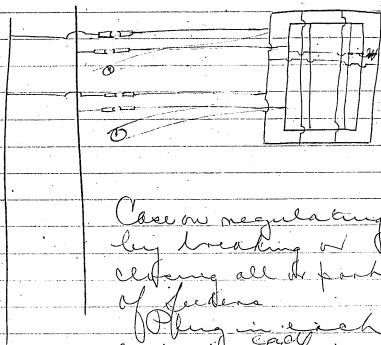 1
1
Case on regulating
by breaking or
closing all or part
of feeders
Plug in each
each